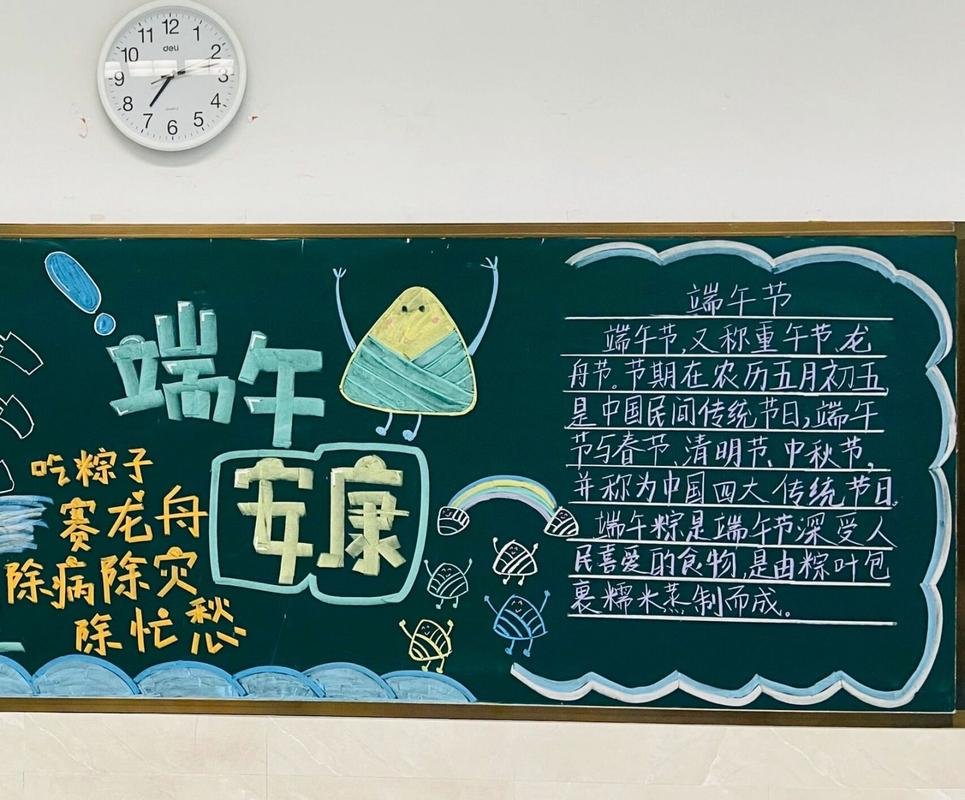 12
1
2
3
4
5
6
7
8
9
10
11
deli
端午
安康
吃粽子
赛龙舟
除病除灾
除忙愁
端午节
端午节,又称重午节、龙
舟节。节期在农历五月初五
是中国民间传统节日,端午
节与春节、清明节、中秋节,
并称为中国四大传统节日。
端午粽是端午节深受人
民喜爱的食物,是由粽叶包
裹糯米蒸制而成。